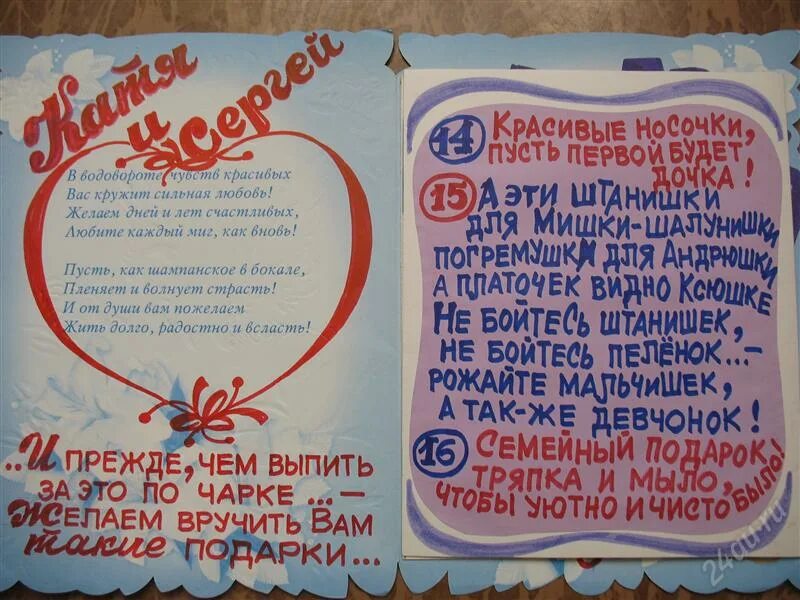 Катя
и
Сергей
В водовороте чувств красивых
Вас кружит сильная любовь!
Желаем дней и лет счастливых,
Любите каждый миг, как вновь!
Пусть, как шампанское в бокале,
Пленяет и волнует страсть!
И от души вам пожелаем
Жить долго, радостно и всласть!
..И ПРЕЖДЕ, ЧЕМ ВЫПИТЬ
ЗА ЭТО ПО ЧАРКЕ ... –
ЖЕЛАЕМ ВРУЧИТЬ ВАМ
такие ПОДАРКИ...
14 КРАСИВЫЕ НОСОЧКИ,
ПУСТЬ ПЕРВОЙ БУДЕТ
ДОЧКА!
15 А ЭТИ ШТАНИШКИ
ДЛЯ МИШКИ-ШАЛУНИШКИ
ПОГРЕМУШКИ ДЛЯ АНДРЮШКИ
А ПЛАТОЧЕК ВИДНО КСЮШКЕ
НЕ БОЙТЕСЬ ШТАНИШЕК,
НЕ БОЙТЕСЬ ПЕЛЁНОК...–
РОЖАЙТЕ МАЛЬЧИШЕК,
А ТАК-ЖЕ ДЕВЧОНОК!
16 СЕМЕЙНЫЙ ПОДАРОК,
ТРЯПКА И МЫЛО,
ЧТОБЫ УЮТНО И ЧИСТО БЫЛО!
24au.ru